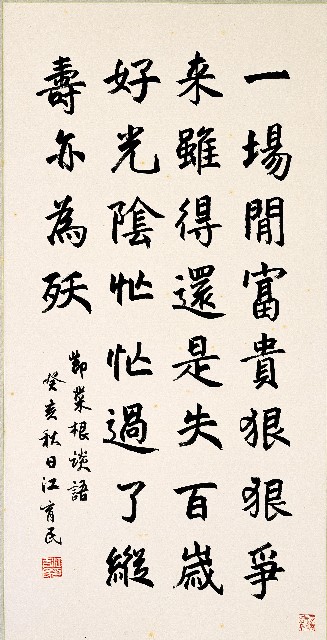 一場閒富貴狠狠爭
来雖得還是失百歲
好光陰忙忙過了縱
壽亦為殀
節菜根谈語
癸亥秋日江育民